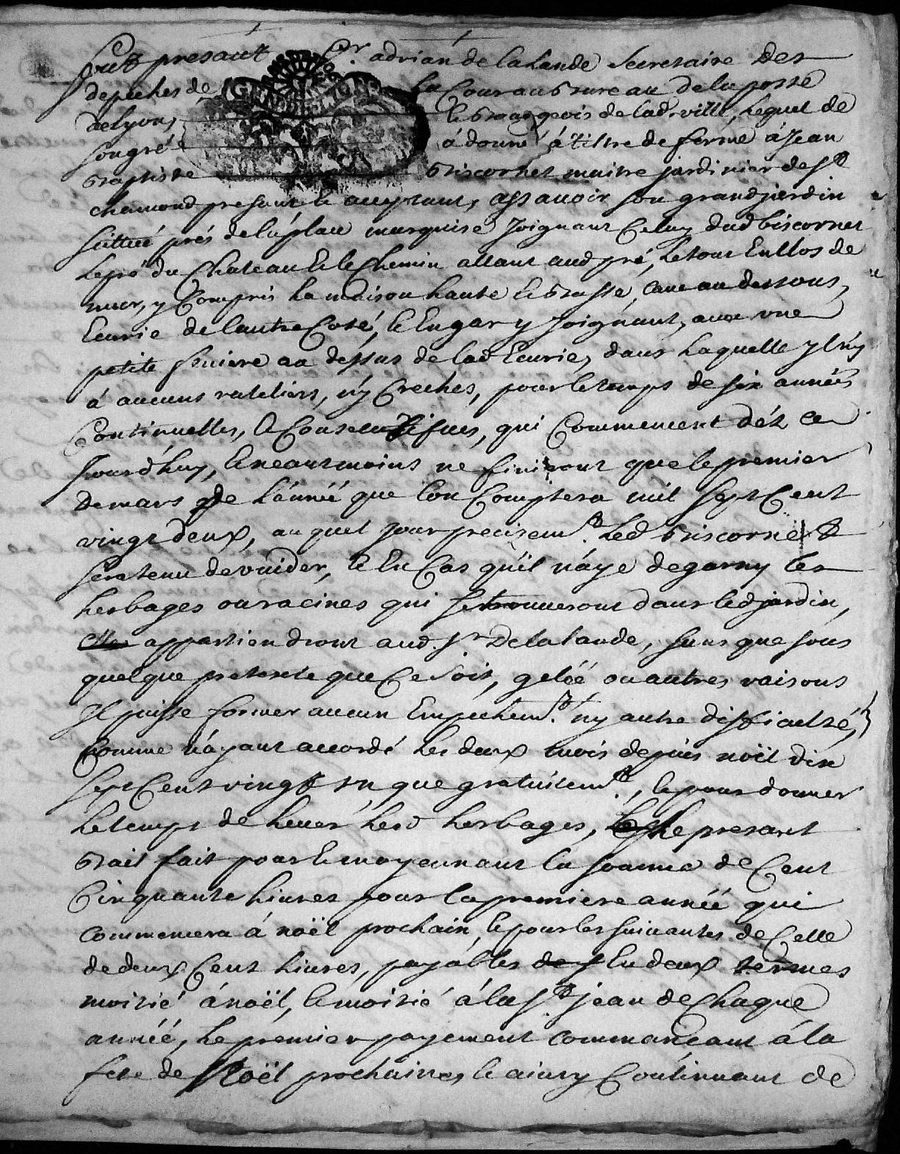 fut presant Sr. adrian de la lande Secretaire des
depeches de la Cour au Bureau de la poste
de lyon, & Bourgeois de lad. ville, Lequel de
son gré à donné à tiltre de ferme a Jean
GEN DE LION
Baptiste Biscornet maitre jardinier de St
chamond presant & acceptant, assavoir son grand jardin
scittué prés de la place marquise Joignant Celuy dud biscornet
Le pré du Chateau & le Chemin allant aud pré, Le tout Enclos de
mur, y Compris La maison haute & Basse, Cave au dessous,
Ecurie de l'autre Coté, & Engar y Joignant, avec une
petite feniere au dessus de lad Ecurie, dans Laquelle yl n'y
á aucuns rateliers, n'y Creches, pour le temps de six années
Continuelles, & Consecutives, qui Commencent dés Ce
Jourd'huy, & neantmoins ne finiront que le premier
de mars de L'année que l'on Comptera mil Sept Cent
vingt deux, auquel Jour precisemt. Led Biscornet
sera tenu de vuider, & En Cas qu'il n'aye degarny les
herbages ou racines qui se trouveront dans led jardin,
appartiendront aud. Sr. De la lande, sans que sous
quelque pretexte que Ce soit, gelée ou autres raisons
Il puisse former aucun Empechemt. n'y autre difficulté,
Comme n'ayant accordé Les deux mois depuis noël dix
sept Cent vingt un que gratuitemt., & pour donner
Le temps de lever Lesd herbages, Le presant
Bail fait pour & moyennant la somme de Cent
Cinquante Livres pour la premiere année qui
commencera á noël prochain & pour les suivantes de Celle
de deux Cent Livres, payables En deux termes
moitié á noël, & moitié á la St jean de Chaque
année, Le premier payement commancant á la
fete de Noël prochaine, & ainsy Continuant de